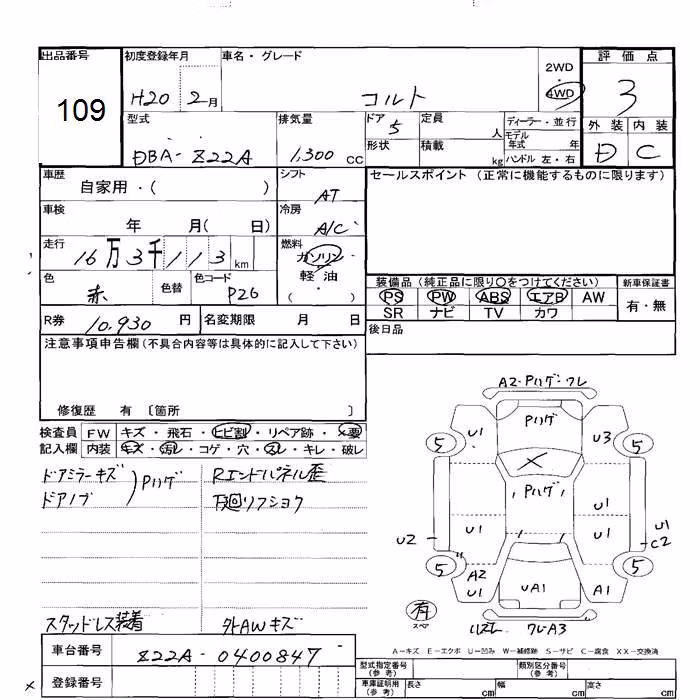 出品番号 初度登録年月 車名・グレード 2WD 評価点
109 H20 2月 コルト 4WD 3
型式 排気量 ドア 定員 ディーラー・並行 外装 内装
DBA-Z22A 1,300 CC 5 人 モデル年式 年 D C
形状 積載 kg ハンドル 左・右
車歴 シフト セールスポイント (正常に機能するものに限ります)
自家用・( ) AT
車検 冷房
年 月( 日) A/C
走行 燃料
16万3千113 km ガソリン
軽油
( ・ )
色 色替 色コード
赤 P26
装備品 (純正品に限り○をつけてください) 新車保証書
PS PW ABS エアB AW 有・無
SR ナビ TV カワ
R券 10,930 円 名変期限 月 日 後日品
注意事項申告欄(不具合内容等は具体的に記入して下さい)
修復歴 有 〔箇所 〕
検査員 FW キズ・飛石・ヒビ割・リペア跡・×要
記入欄 内装 キズ・汚レ・コゲ・穴・スレ・キレ・破レ
ドアミラーキズ Pハゲ Rエンドパネル歪
ドアノブ 下廻リフショク
スタッドレス装着 外AWキズ
A2・Pハゲ・ワレ
Pハゲ
U1 U3
5 5
Pハゲ
U1
U2 U1 U1 U1
C2
5 5
A2
U1 UA1 A1
有
スペア
ハズレ ワレA3
A-キズ E-エクボ U-凹み W-補修跡 S-サビ C-腐食 XX-交換済
車台番号 Z22A-0400847
登録番号
型式指定番号 (参考) 類別区分番号 (参考)
車庫証明用 (参考) 長さ cm 幅 cm 高さ cm